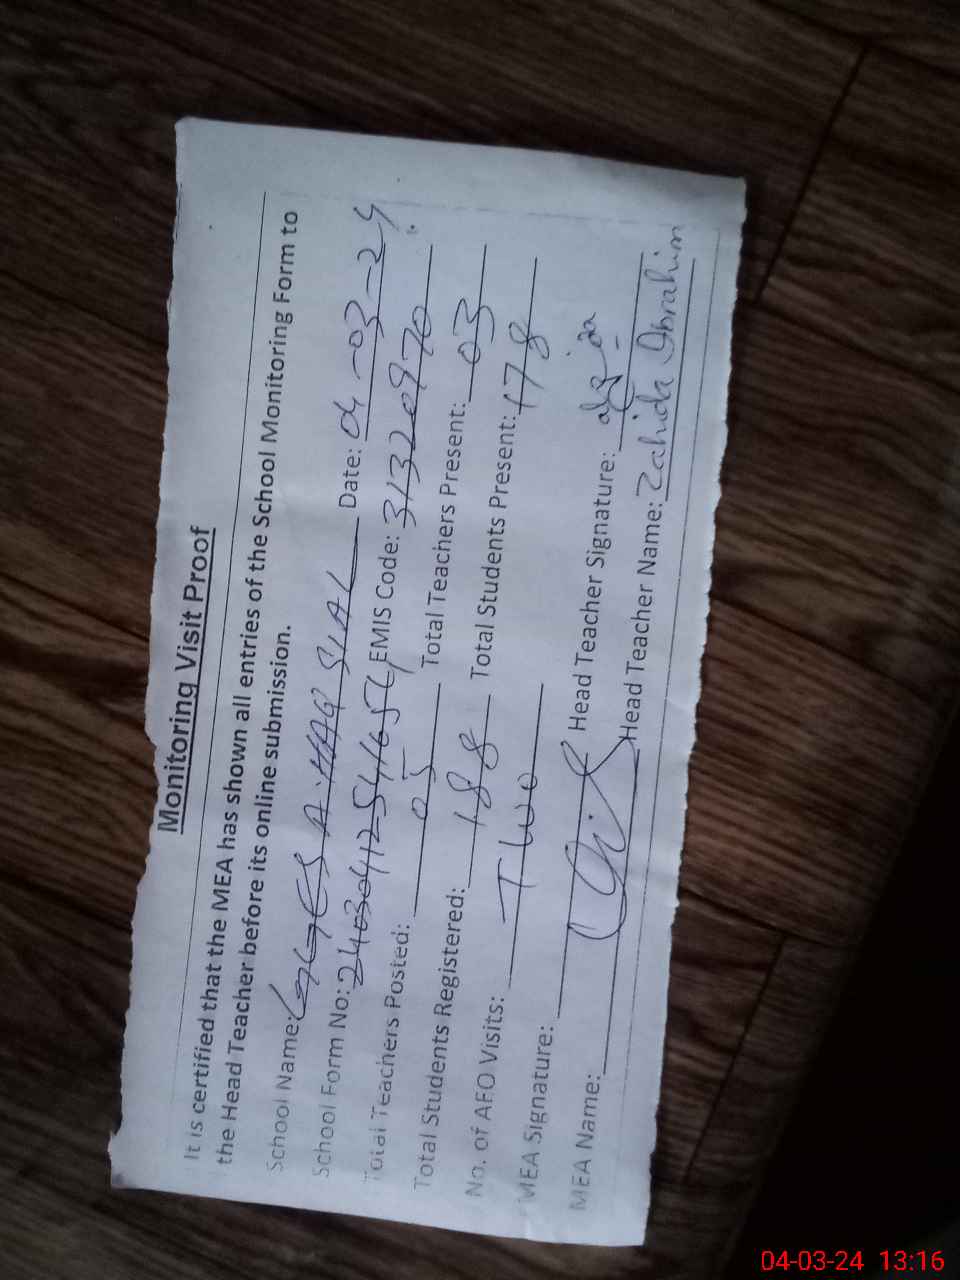 Monitoring Visit Proof
It is certified that the MEA has shown all entries of the School Monitoring Form to
the Head Teacher before its online submission.
School Name: GGES A. HAQ SIAL Date: 04-03-24
School Form No: 2403041254165 EMIS Code: 31320970
Total Teachers Posted: 05 Total Teachers Present: 03
Total Students Registered: 188 Total Students Present: 178
No. of AEO Visits: Two
MEA Signature: Head Teacher Signature:
MEA Name: Head Teacher Name: Zahida Ibrahim
04-03-24 13:16